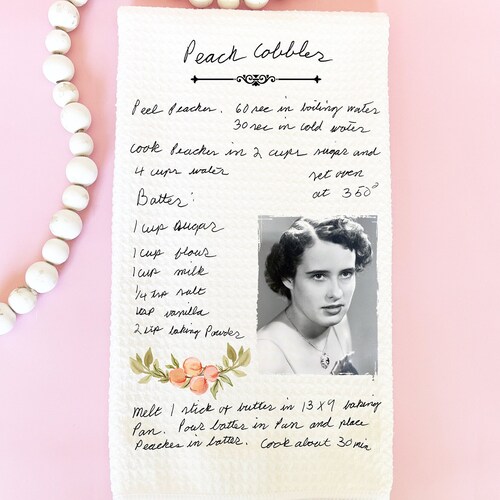 Peach Cobbler
Peel Peaches. 60 sec in boiling water
30 sec in cold water
Cook Peaches in 2 cups sugar and
4 cups water
set oven
at 350°
Batter:
1 cup sugar
1 cup flour
1 cup milk
1/4 tsp salt
1 tsp vanilla
2 tsp baking Powder
Melt 1 stick of butter in 13 x 9 baking
Pan. Pour batter in Pan and place
Peaches in batter. Cook about 30 min